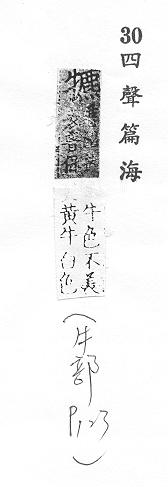 30 四聲篇海
犥
牛色不美
黃牛白色
(牛部 P123)